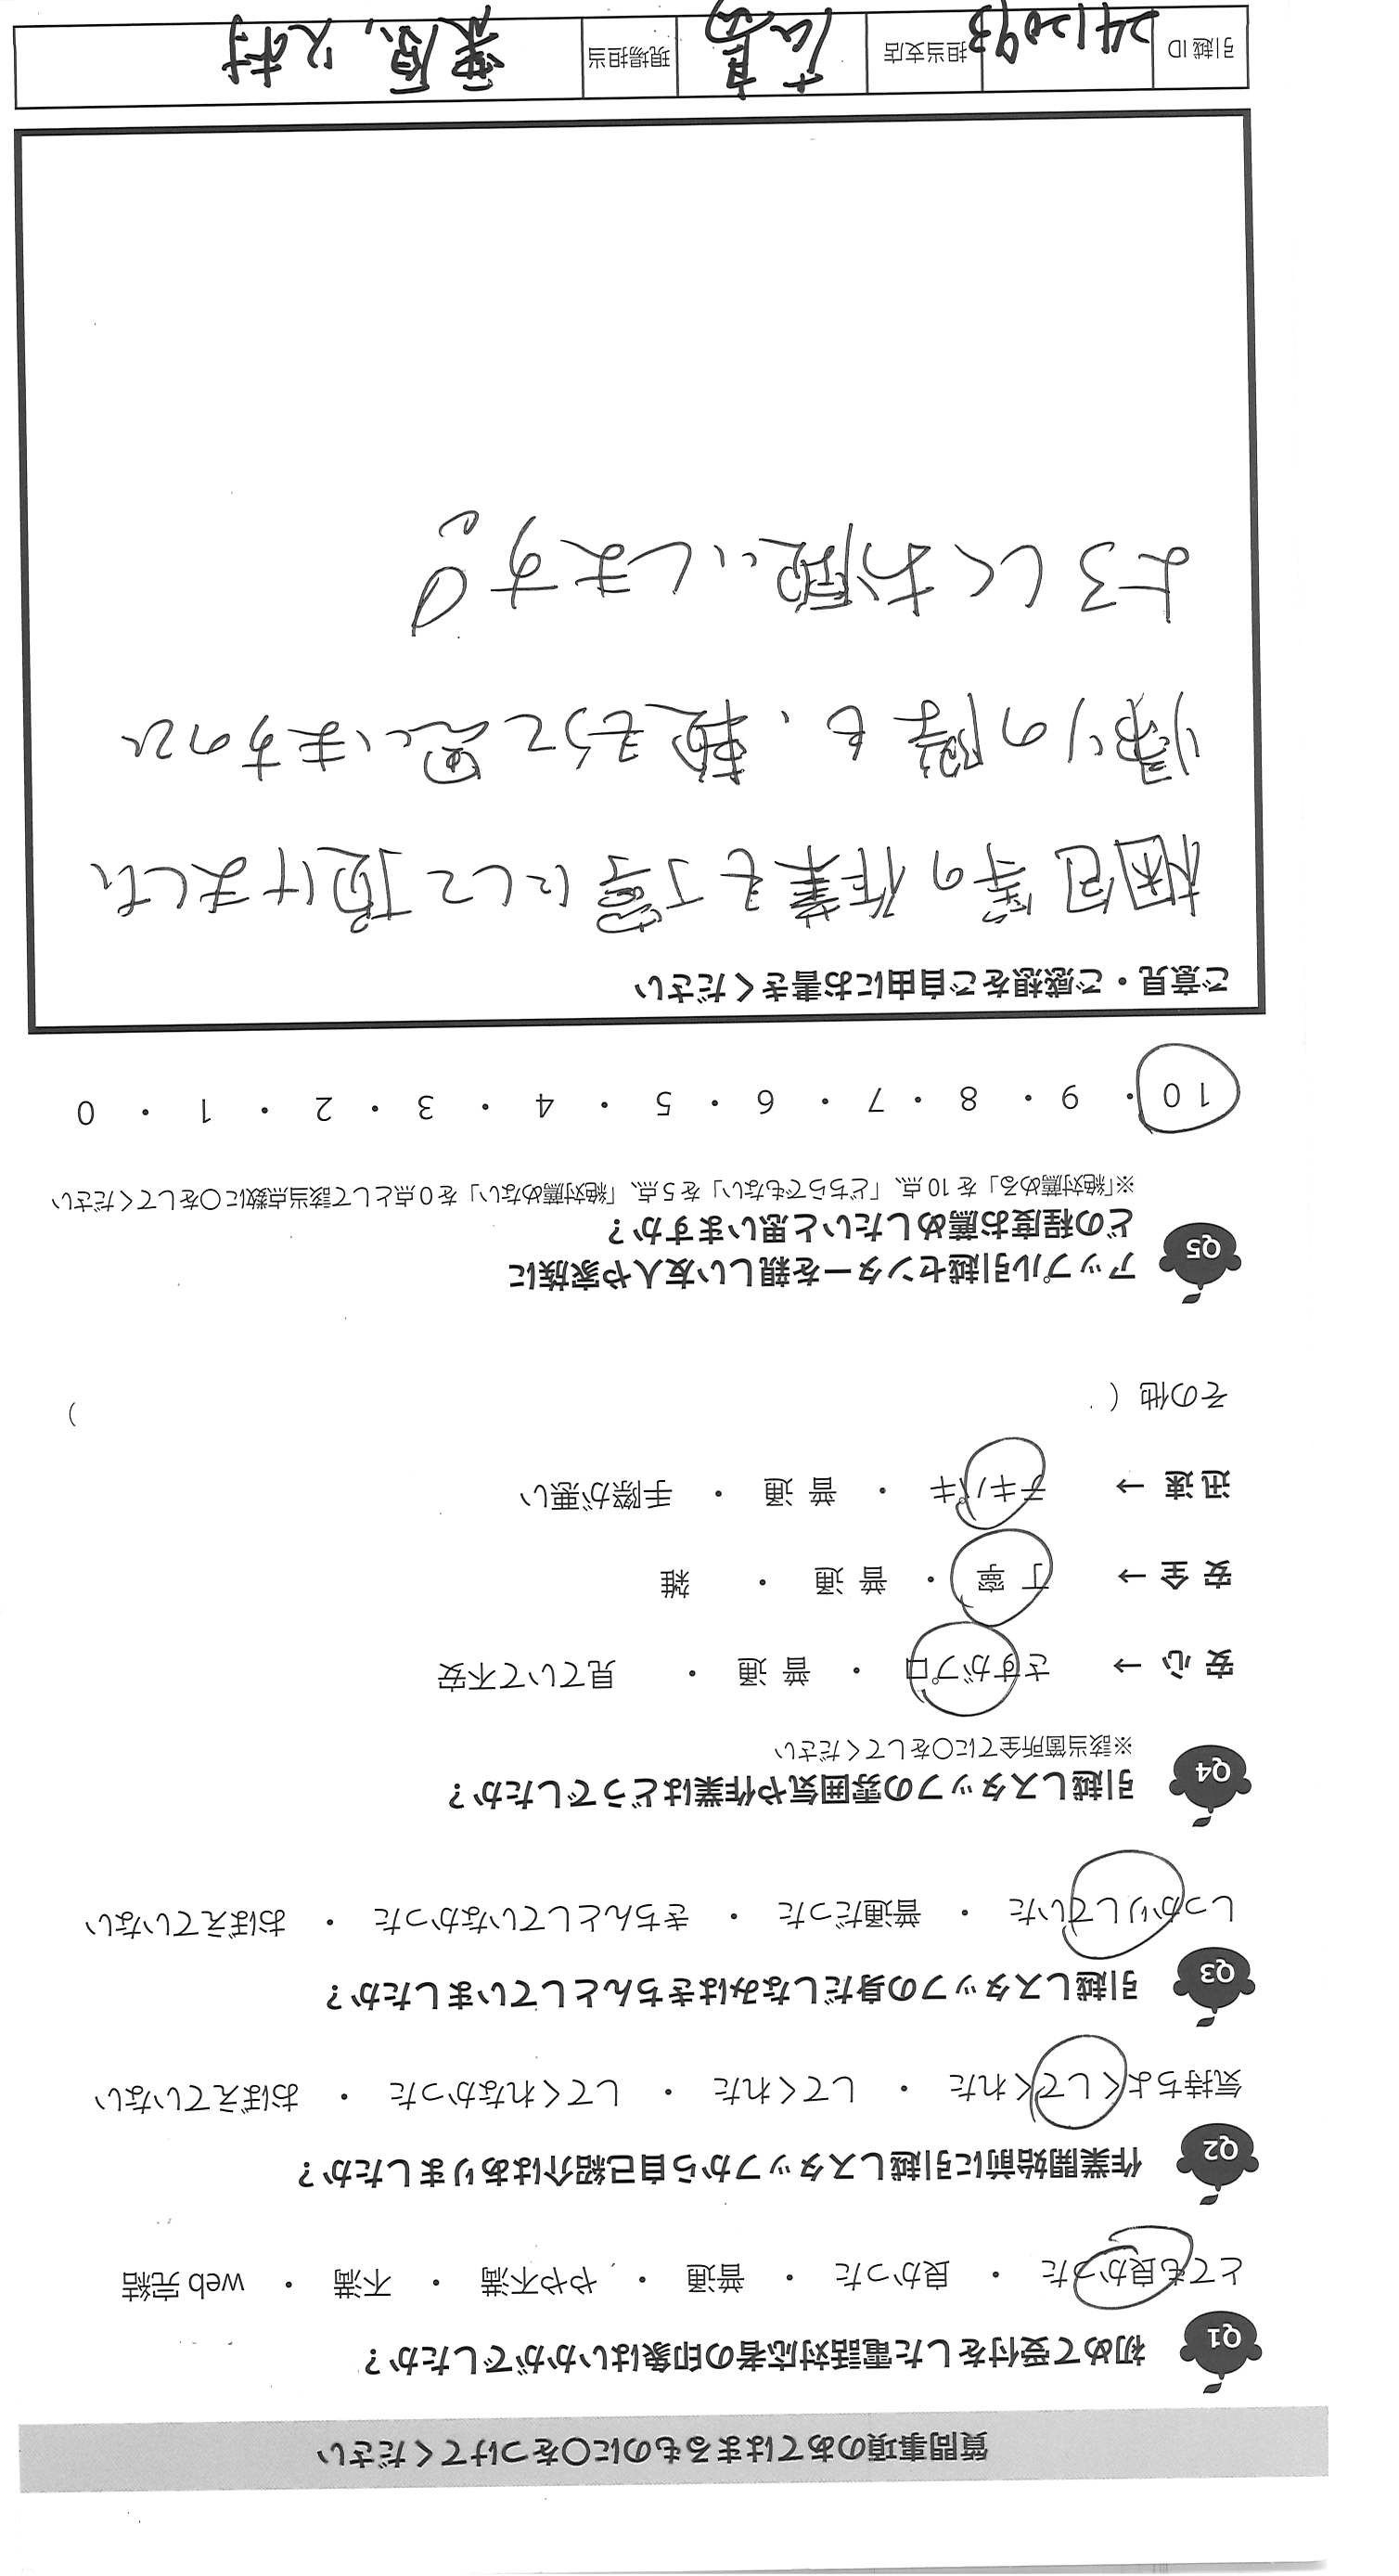 質問事項のあてはまるものに○をつけてください
Q1 初めて受付をした電話対応者の印象はいかがでしたか？
とても良かった ・ 良かった ・ 普通 ・ やや不満 ・ 不満 ・ web 完結
Q2 作業開始前に引越しスタッフから自己紹介はありましたか？
気持ちよくしてくれた ・ してくれた ・ してくれなかった ・ おぼえていない
Q3 引越しスタッフの身だしなみはきちんとしていましたか？
しっかりしていた ・ 普通だった ・ きちんとしていなかった ・ おぼえていない
Q4 引越しスタッフの雰囲気や作業はどうでしたか？
※該当箇所全てに○をしてください
安心 → さすがプロ ・ 普通 ・ 見ていて不安
安全 → 丁寧 ・ 普通 ・ 雑
迅速 → テキパキ ・ 普通 ・ 手際が悪い
その他（ ）
Q5 アップル引越センターを親しい友人や家族に
どの程度お薦めしたいと思いますか？
※「絶対薦める」を 10 点、「どちらでもない」を 5 点、「絶対薦めない」を 0 点として該当点数に○をしてください
10 ・ 9 ・ 8 ・ 7 ・ 6 ・ 5 ・ 4 ・ 3 ・ 2 ・ 1 ・ 0
ご意見・ご感想をご自由にお書きください
梱包等の作業も丁寧にして頂けました、
帰りの際も、頼もうと思いますので
よろしくお願いします。
引越 ID 2412093 担当支店 現場担当